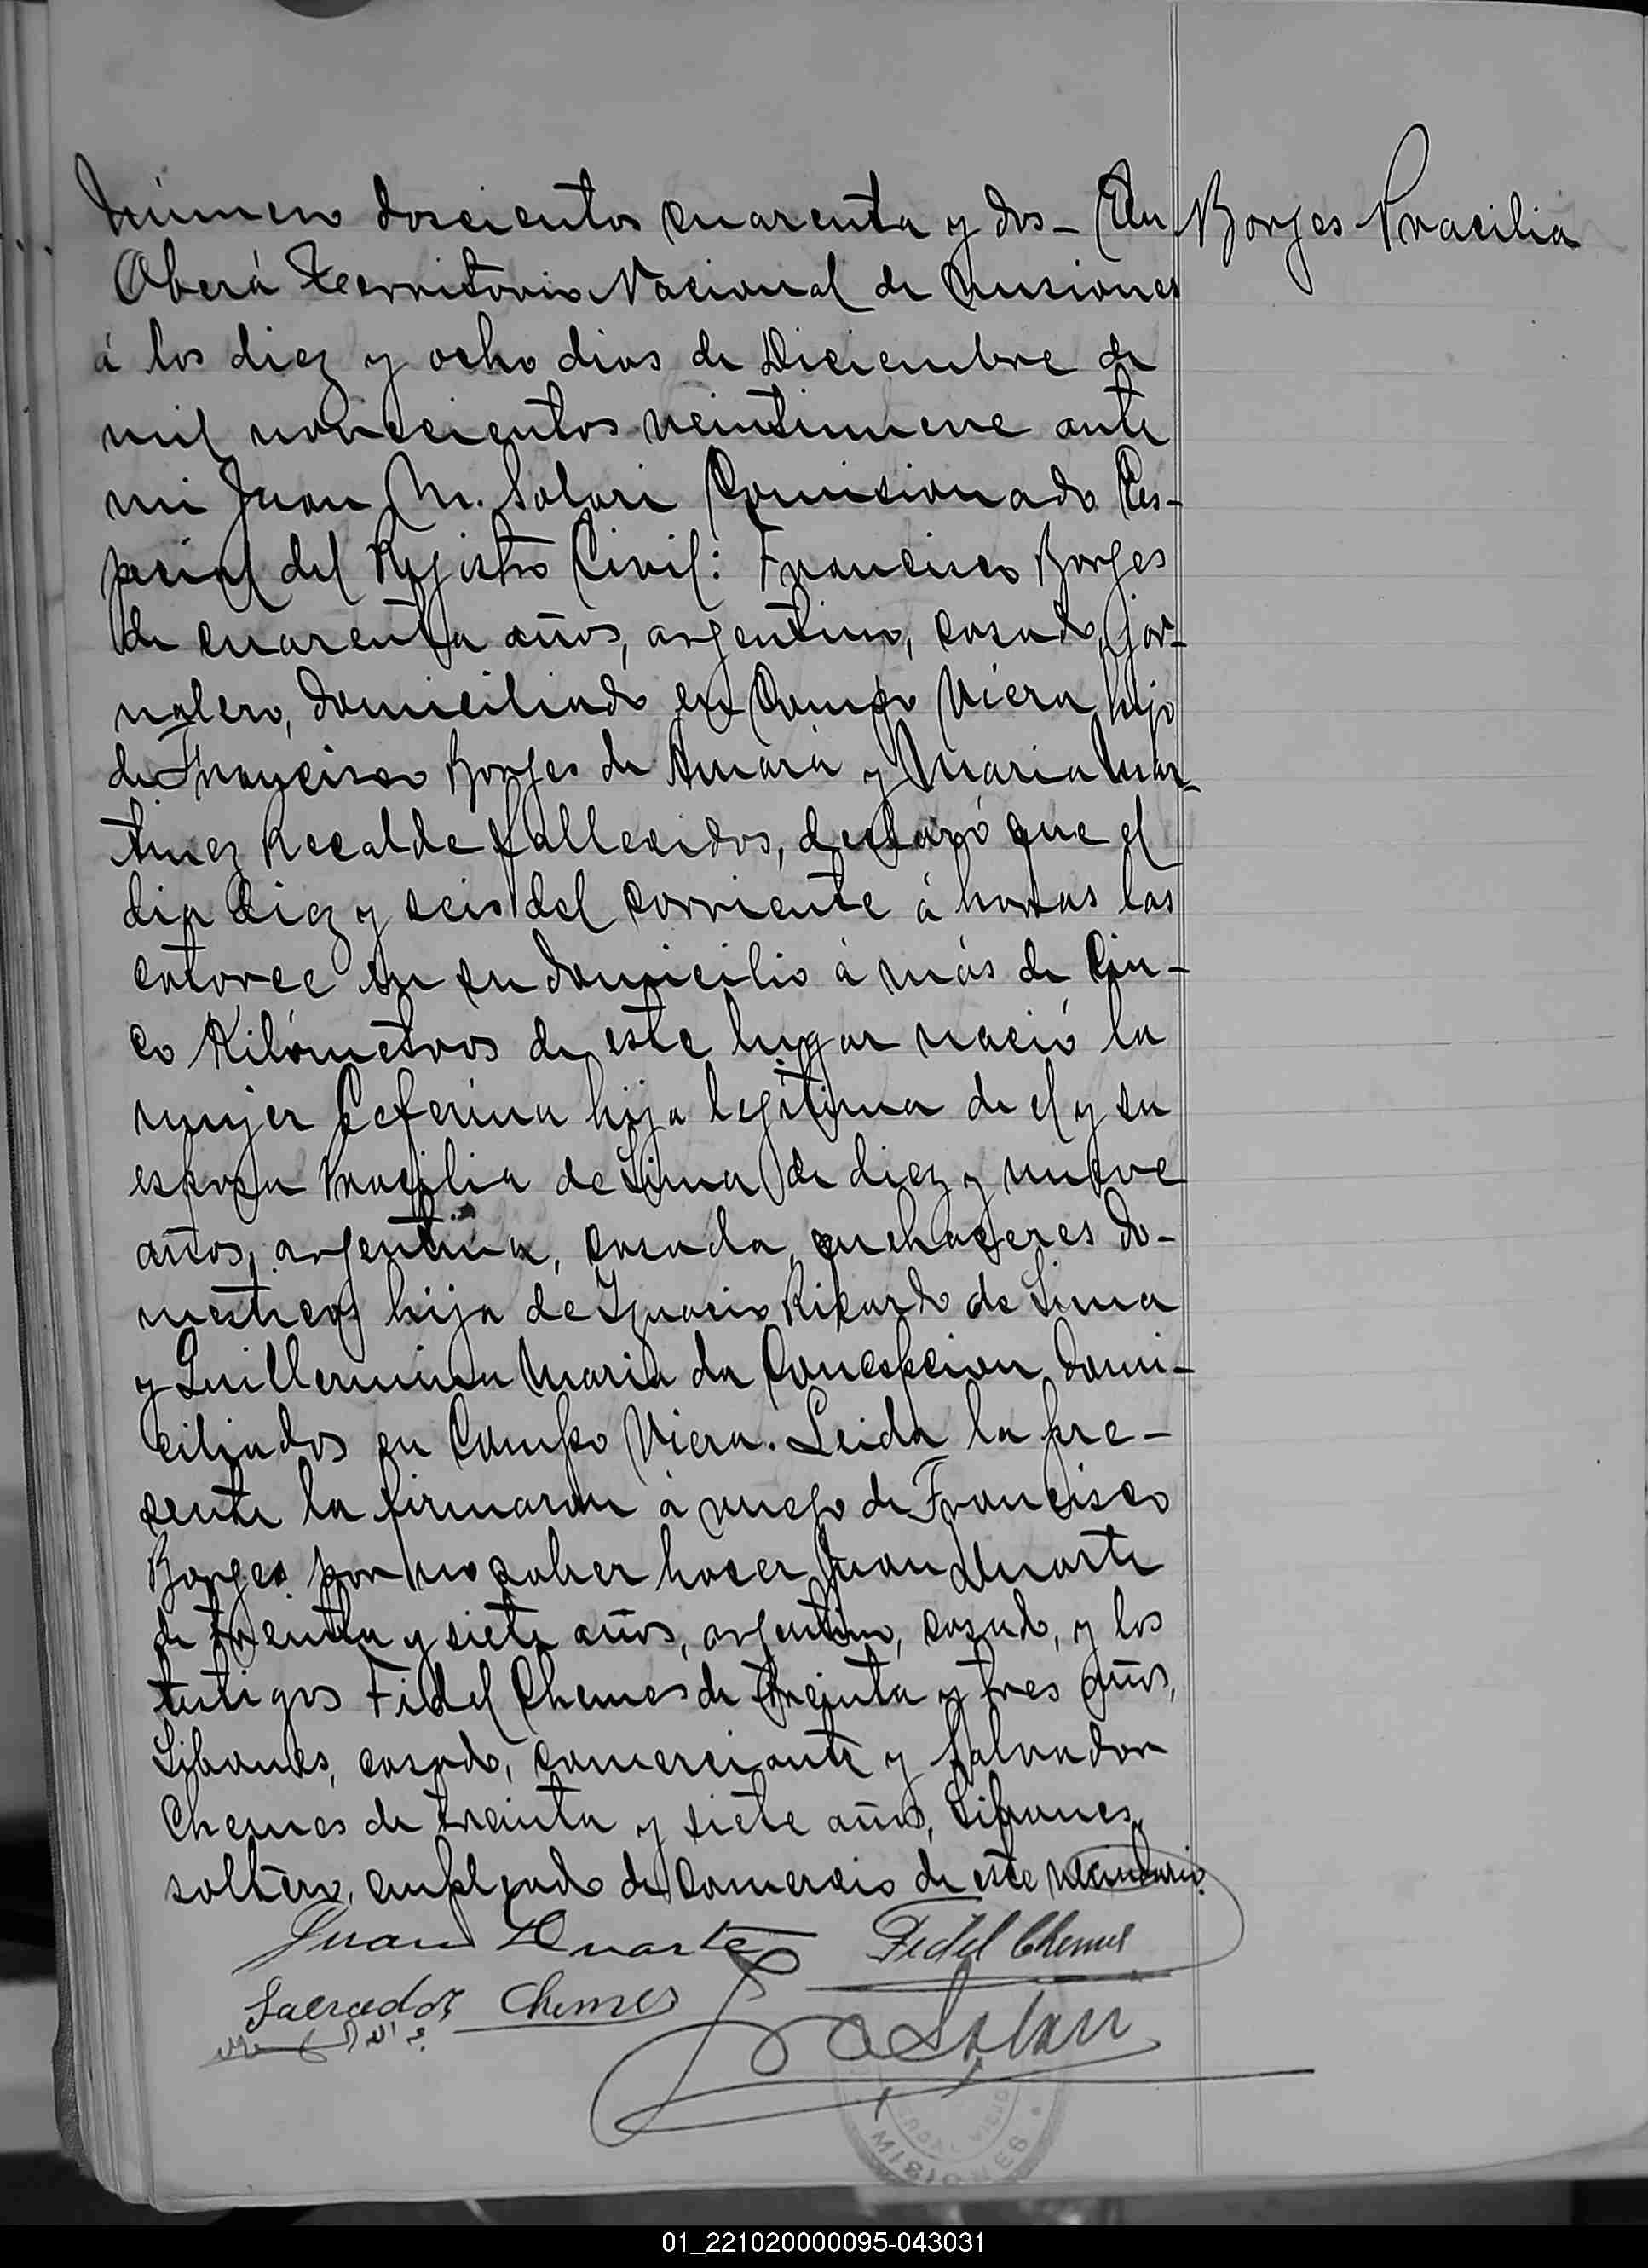 Número doscientos cuarenta y dos – En
Borges Pracilia
Oberá Territorio Nacional de Misiones
á los diez y ocho dias de Diciembre de
mil novecientos veintinueve ante
mi Juan M. Solari Comisionado Es-
pecial del Registro Civil: Francisco Borges
de cuarenta años, argentino, casado, jor-
nalero, domiciliado en Campo Viera, hijo
de Francisco Borges de Amara y Maria Mar-
tinez Recalde fallecidos, declaró que el
dia diez y seis del corriente á horas las
catorce en su domicilio á más de Cin-
co Kilómetros de este lugar nació la
mujer Ceferina hija legítima de el y su
esposa Pracilia de Lima de diez y nueve
años, argentina, casada, quehaceres do-
mesticos hija de Ignacio Rikardo de Lima
y Guillermina Maria da Concepcion domi-
ciliados en Campo Viera. Leida la pre-
sente la firmaron á ruego de Francisco
Borges por no saber hacer Juan Duarte
de treinta y siete años, argentino, casado, y los
testigos Fidel Chemes de treinta y tres años,
Libanés, casado, comerciante y Salvador
Chemes de treinta y siete años, Libanes,
soltero, empleado de Comercio de este vecindario.
Juan Duarte Fidel Chemes
Salvador Chemes
Solari
MISIONES
01_221020000095-043031